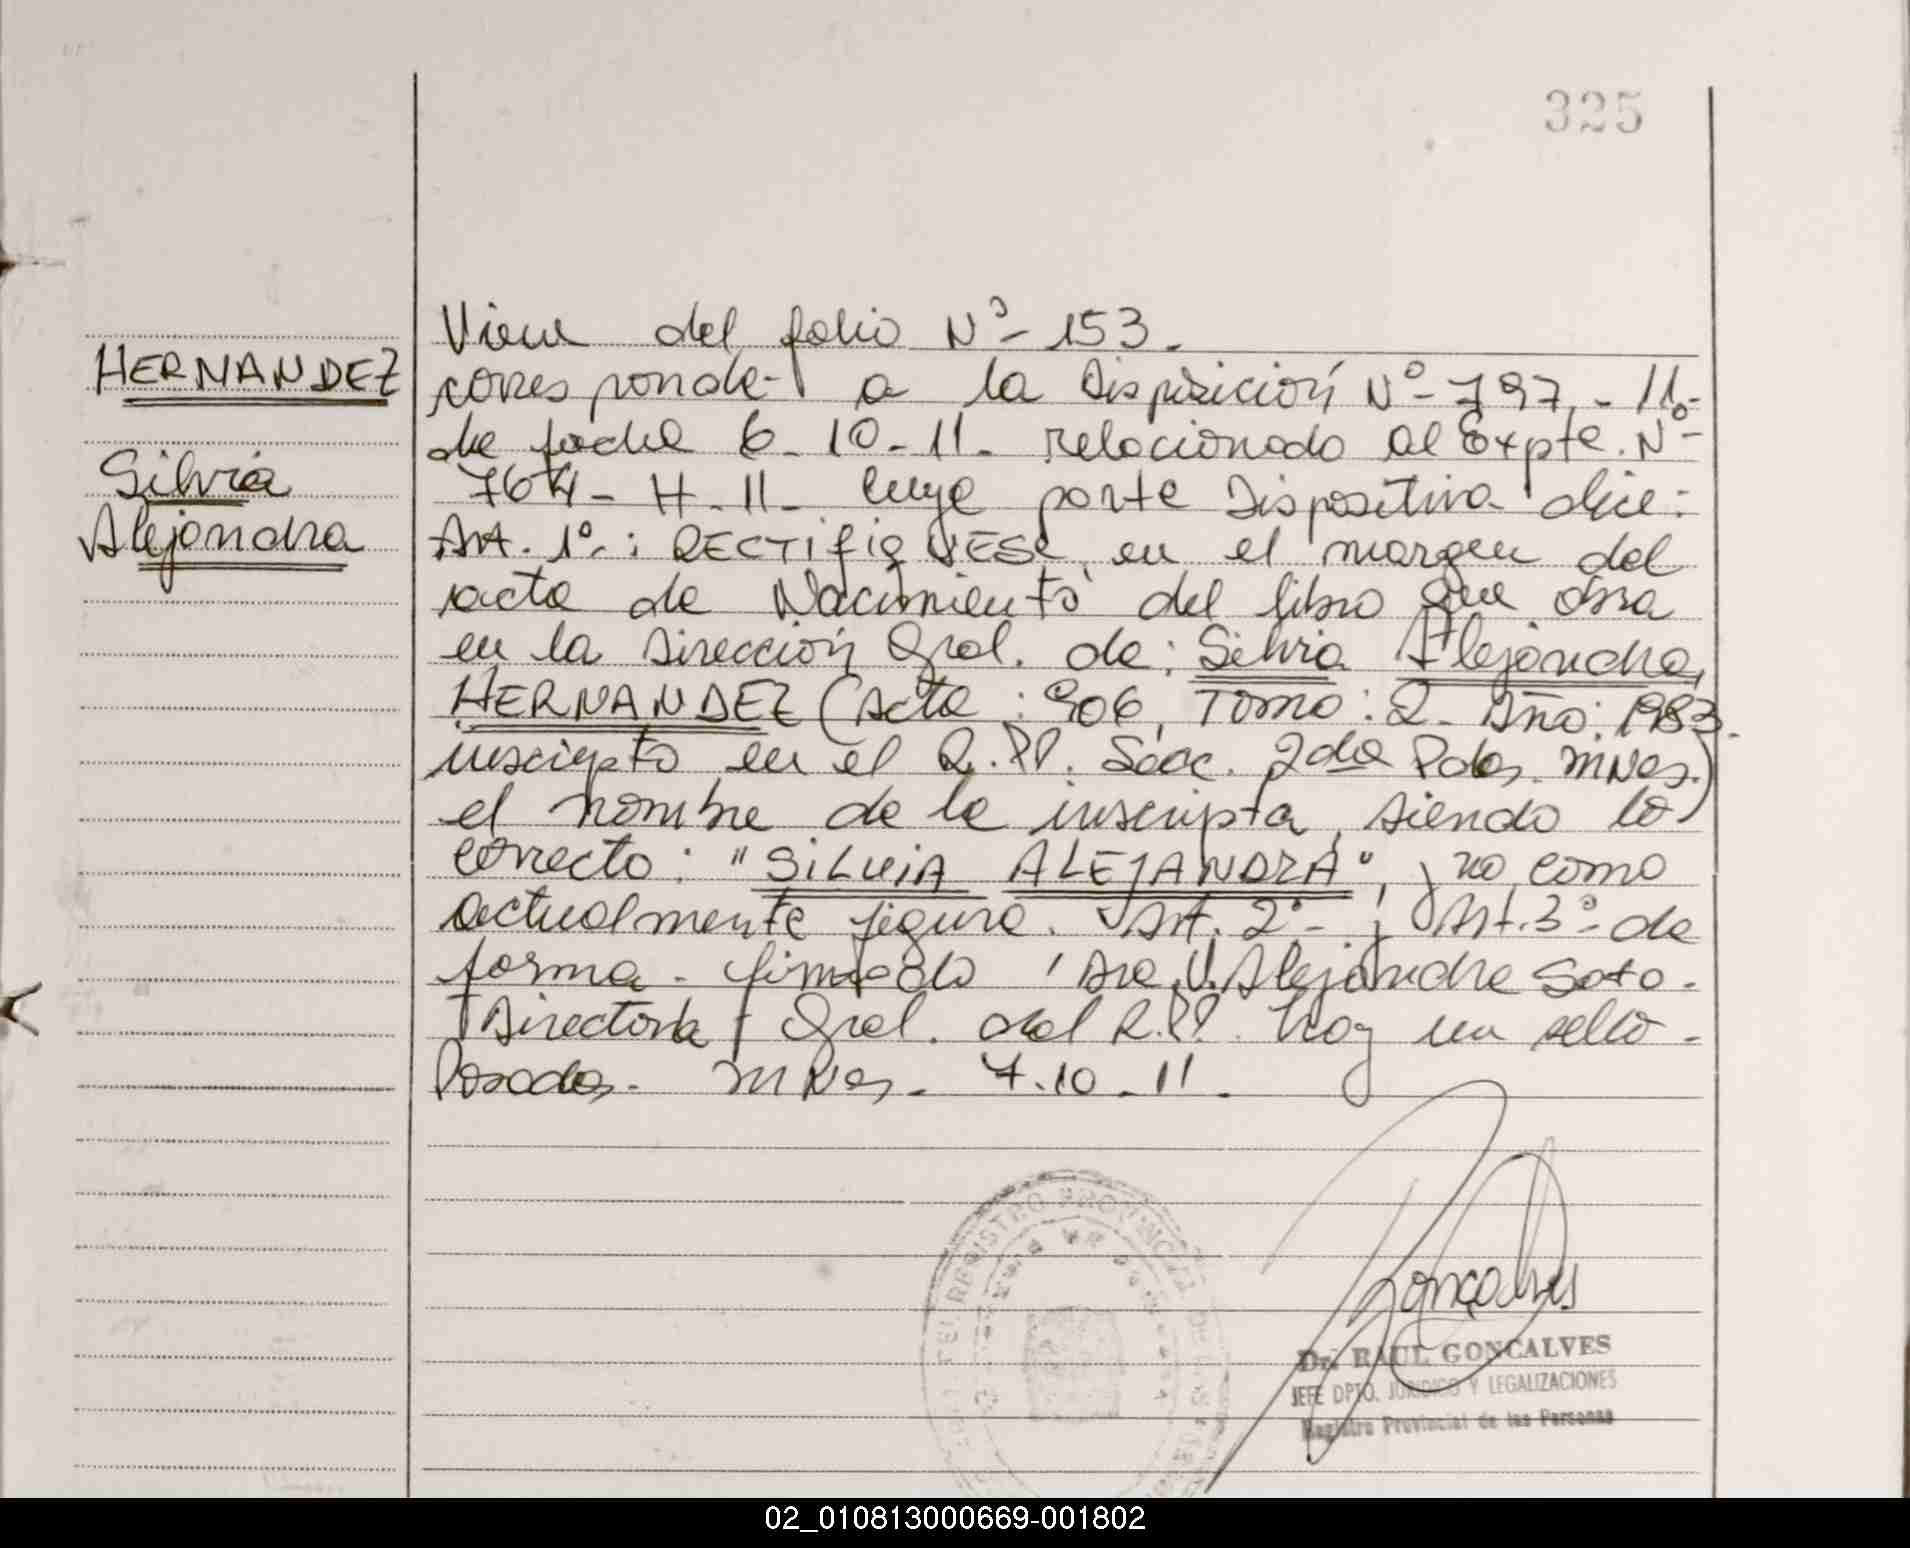 325
HERNANDEZ
Silvia
Alejandra
Viene del folio Nº- 153.
corresponde- a la Disposición Nº- 797.- 11.-
de fecha 6-10-11- relacionado al Expte. Nº-
7674- H-11- cuya parte Dispositiva dice:
Art. 1º-: RECTIFIQUESE en el margen del
acta de Nacimiento del libro que obra
en la Dirección Gral. de: Silvia Alejandra
HERNANDEZ (Acta: 906, Tomo: 2- Año: 1983.
inscripto en el R.PP. Secc. 2da Pdas. MNes.)
el nombre de la inscripta, siendo lo
correcto: "SILVIA ALEJANDRA", y no como
actualmente figura. Art. 2º- y Art. 3º- de
forma- firmado Dra. V. Alejandra Soto.
Directora Gral. del R.PP. hay un sello-
Posadas- MNes- 7-10-11.
Gonçalves
Dr. RAUL GONCALVES
JEFE DPTO. JURIDICO Y LEGALIZACIONES
Registro Provincial de las Personas
DEL REGISTRO PROVINCIAL DE LAS
02_010813000669-001802